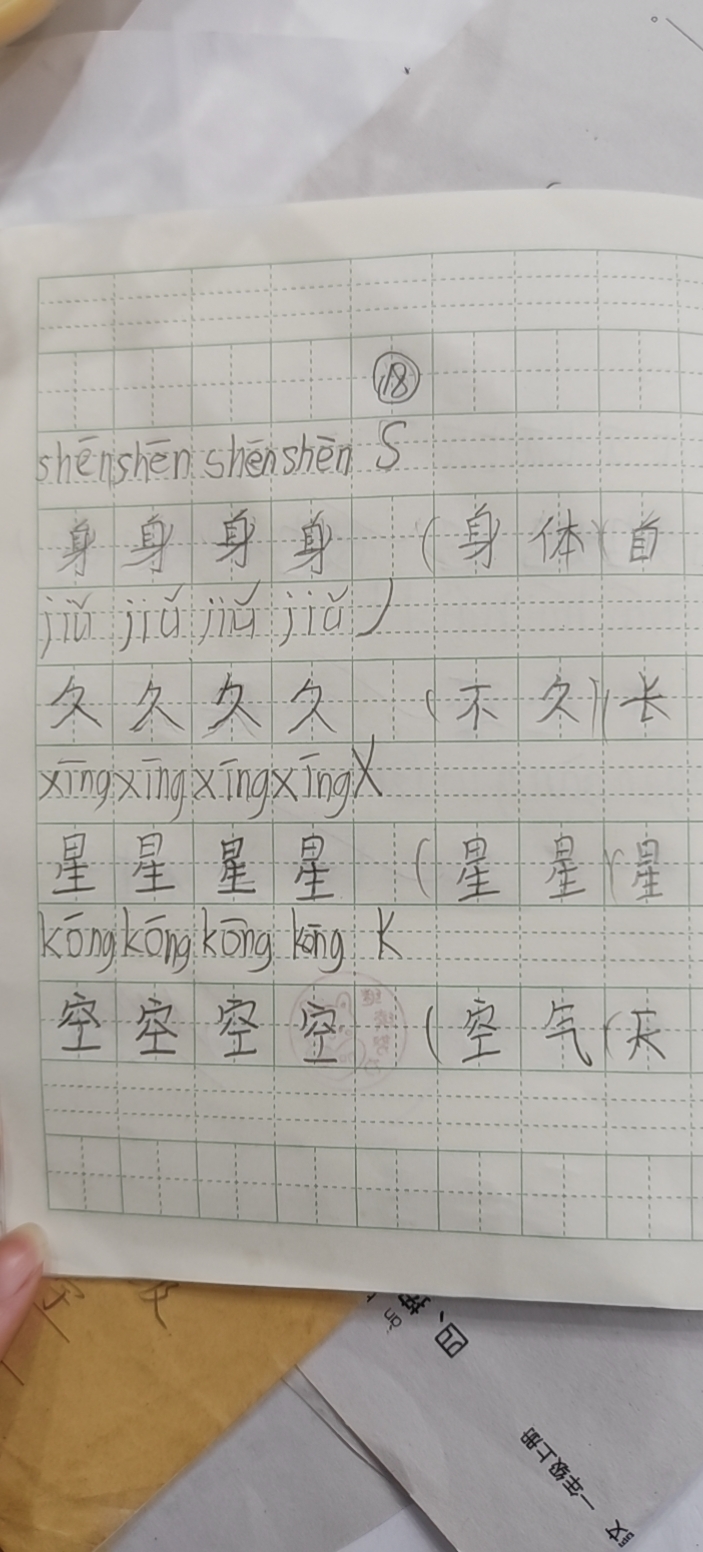 ⑱
shēn shēn shēn shēn S
身 身 身 身 (身 体)(自
jiǔ jiǔ jiǔ jiǔ J
久 久 久 久 (不 久)(长
xīng xīng xīng xīng X
星 星 星 星 (星 星)(星
kōng kōng kōng kōng K
空 空 空 空 (空 气(天
四、
一年级上册